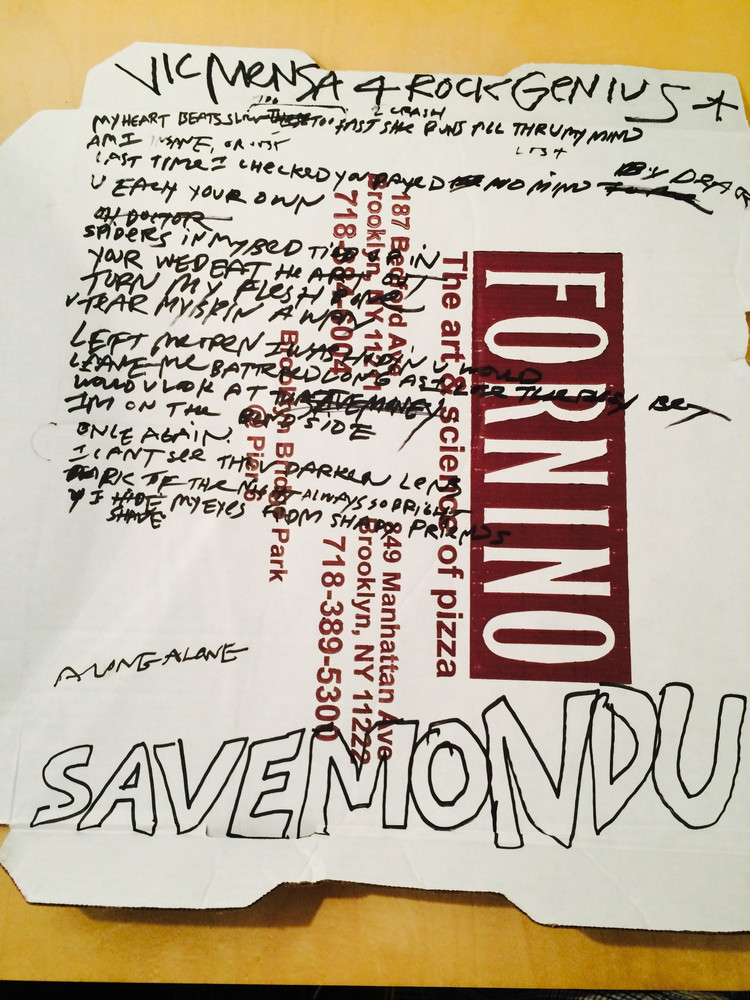 VIC MENSA 4 ROCK GENIUS *
CRASH
MY HEART BEATS SLOW TOO FAST SHE RUNS ALL THRU MY MIND
AM I INSANE, OR JUST
LOST
LAST TIME I CHECKED YOU PAYED NO MIND
BY
U EACH YOUR OWN
OH DOCTOR
SPIDERS IN MY BED TIED UP IN
YOUR WEB EAT HEART OUT
TURN MY FLESH
TEAR MY SKIN AWAY
LEFT ME I WAS U WOULD
LEAVE ME BATTERED LONG AS
WOULD U LOOK AT SAVEMONEY
IM ON THE SIDE
ONCE AGAIN.
I CANT SEE THRU DARKEN LENS
DARK OF THE NIGHT ALWAYS SO BRIGHT
I HIDE MY EYES FROM SHADY FRIENDS
SHADE
ALONG ALONE
SAVEMONDU
FORNINO
The art & science of pizza
187 Bedford Ave
Brooklyn, NY 11211
718-384-6004
849 Manhattan Ave
Brooklyn, NY 11222
718-389-5300
Brooklyn Bridge Park
@ Pier 6